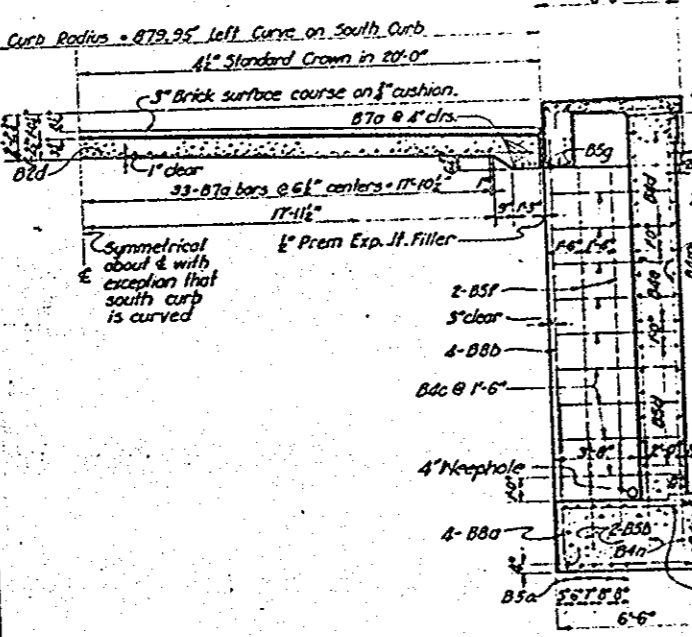 Curb Radius = 879.95' Left Curve on South Curb
4½" Standard Crown in 20'-0"
3" Brick surface course on ¾" cushion.
B7a @ 4" ctrs.
B5g
B2d
1" clear
33-B7a bars @ 6½" centers = 17'-10½"
1"
B4d
17'-11½"
9" 1'-3"
½" Prem Exp. Jt. Filler
1'-6" 1'-4"
1'-0"
Symmetrical
about ℄ with
exception that
south curb
is curved
℄
2-B5f
B4e
3" clear
1'-0"
4-B8b
B4c @ 1'-6"
B5d
3'-8"
4" Weephole
4-B8a
2-B5b
B4n
4"
B5a
5" 6" 7" 8" 8"
6'-6"